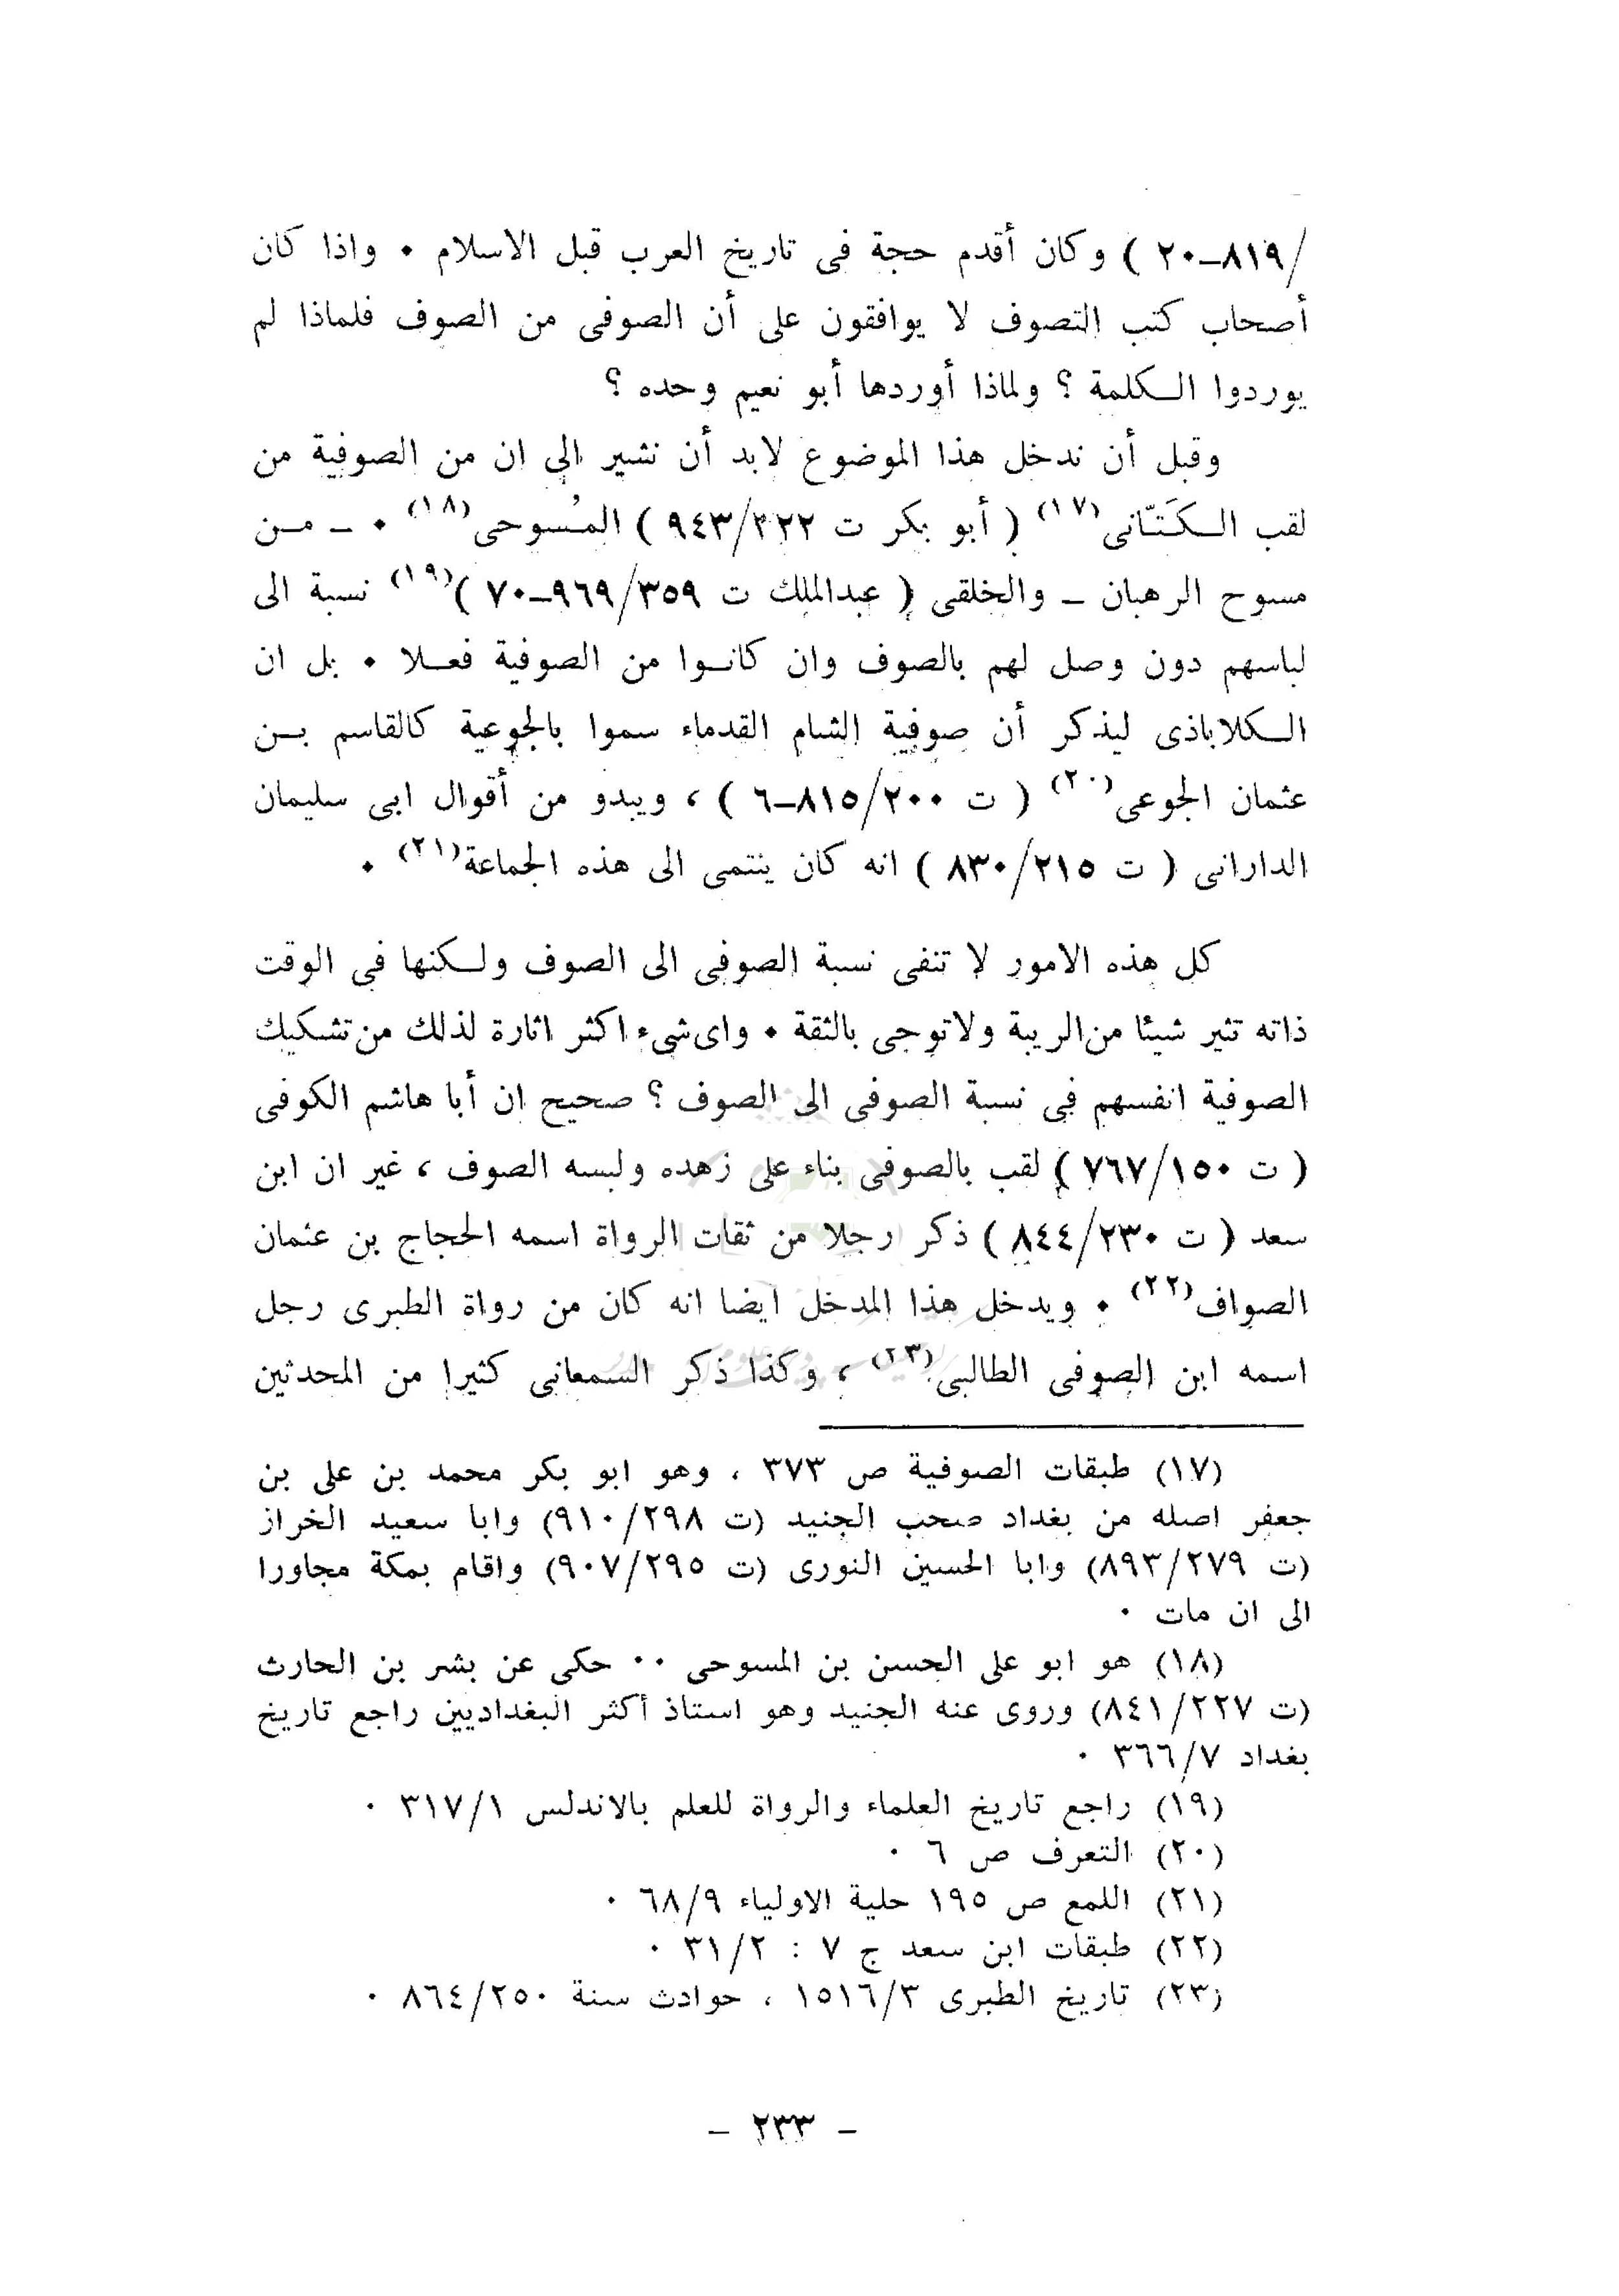 /٨١٩ـ٢٠ ) وكان أقدم حجة فى تاريخ العرب قبل الاسلام ٠ واذا كان
أصحاب كتب التصوف لا يوافقون على أن الصوفى من الصوف فلماذا لم
يوردوا الـكلمة ؟ ولماذا أوردها أبو نعيم وحده ؟
وقبل أن ندخل هذا الموضوع لابد أن نشير الى ان من الصوفية من
لقب الـكَتـّانى(١٧) ( أبو بكر ت ٣٢٢/٩٤٣ ) المُسوحى(١٨) ٠ ـ مـن
مسوح الرهبان ـ والخلقى ( عبدالملك ت ٣٥٩/٩٦٩ـ٧٠ )(١٩) نسبة الى
لباسهم دون وصل لهم بالصوف وان كانـوا من الصوفية فعـلا ٠ بل ان
الـكلاباذى ليذكر أن صوفية الشام القدماء سموا بالجوعية كالقاسم بـن
عثمان الجوعى(٢٠) ( ت ٢٠٠/٨١٥ـ٦ ) ، ويبدو من أقوال ابى سليمان
الدارانى ( ت ٢١٥/٨٣٠ ) انه كان ينتمى الى هذه الجماعة(٢١) ٠
كل هذه الامور لا تنفى نسبة الصوفى الى الصوف ولـكنها فى الوقت
ذاته تثير شيئا من الريبة ولا توحى بالثقة ٠ واى شىء اكثر اثارة لذلك من تشكيك
الصوفية انفسهم فى نسبة الصوفى الى الصوف ؟ صحيح ان أبا هاشم الكوفى
( ت ١٥٠/٧٦٧ ) لقب بالصوفى بناء على زهده ولبسه الصوف ، غير ان ابن
سعد ( ت ٢٣٠/٨٤٤ ) ذكر رجلا من ثقات الرواة اسمه الحجاج بن عثمان
الصواف(٢٢) ٠ ويدخل هذا المدخل ايضا انه كان من رواة الطبرى رجل
اسمه ابن الصوفى الطالبى(٢٣) ، وكذا ذكر السمعانى كثيرا من المحدثين
(١٧) طبقات الصوفية ص ٣٧٣ ، وهو ابو بكر محمد بن على بن
جعفر اصله من بغداد صحب الجنيد (ت ٢٩٨/٩١٠) وابا سعيد الخراز
(ت ٢٧٩/٨٩٣) وابا الحسين النورى (ت ٢٩٥/٩٠٧) واقام بمكة مجاورا
الى ان مات ٠
(١٨) هو ابو على الحسن بن المسوحى ٠٠ حكى عن بشر بن الحارث
(ت ٢٢٧/٨٤١) وروى عنه الجنيد وهو استاذ أكثر البغداديين راجع تاريخ
بغداد ٧/٣٦٦ ٠
(١٩) راجع تاريخ العلماء والرواة للعلم بالاندلس ١/٣١٧ ٠
(٢٠) التعرف ص ٦ ٠
(٢١) اللمع ص ١٩٥ حلية الاولياء ٩/٦٨ ٠
(٢٢) طبقات ابن سعد ج ٧ : ٢/٣١ ٠
(٢٣) تاريخ الطبرى ٣/١٥١٦ ، حوادث سنة ٢٥٠/٨٦٤ ٠
ـ ٢٣٣ ـ